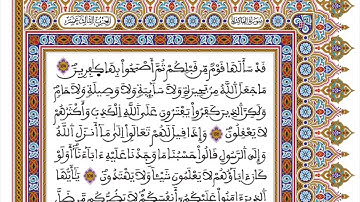 سورة المائدة الحزب الثالث عشر
قَدْ سَأَلَهَا قَوْمٌ مِّن قَبْلِكُمْ ثُمَّ أَصْبَحُواْ بِهَا كَٰفِرِينَ
مَا جَعَلَ ٱللَّهُ مِنۢ بَحِيرَةٍ وَلَا سَآئِبَةٍ وَلَا وَصِيلَةٍ وَلَا حَامٍ
وَلَٰكِنَّ ٱلَّذِينَ كَفَرُواْ يَفْتَرُونَ عَلَى ٱللَّهِ ٱلْكَذِبَ وَأَكْثَرُهُمْ
لَا يَعْقِلُونَ وَإِذَا قِيلَ لَهُمْ تَعَالَوْاْ إِلَىٰ مَآ أَنزَلَ ٱللَّهُ
وَإِلَى ٱلرَّسُولِ قَالُواْ حَسْبُنَا مَا وَجَدْنَا عَلَيْهِ ءَابَآءَنَآ أَوَلَوْ
كَانَ ءَابَآؤُهُمْ لَا يَعْلَمُونَ شَيْـًٔا وَلَا يَهْتَدُونَ يَٰٓأَيُّهَا
ٱلَّذِينَ ءَامَنُواْ عَلَيْكُمْ أَنفُسَكُمْ لَا يَضُرُّكُم مَّن ضَلَّ